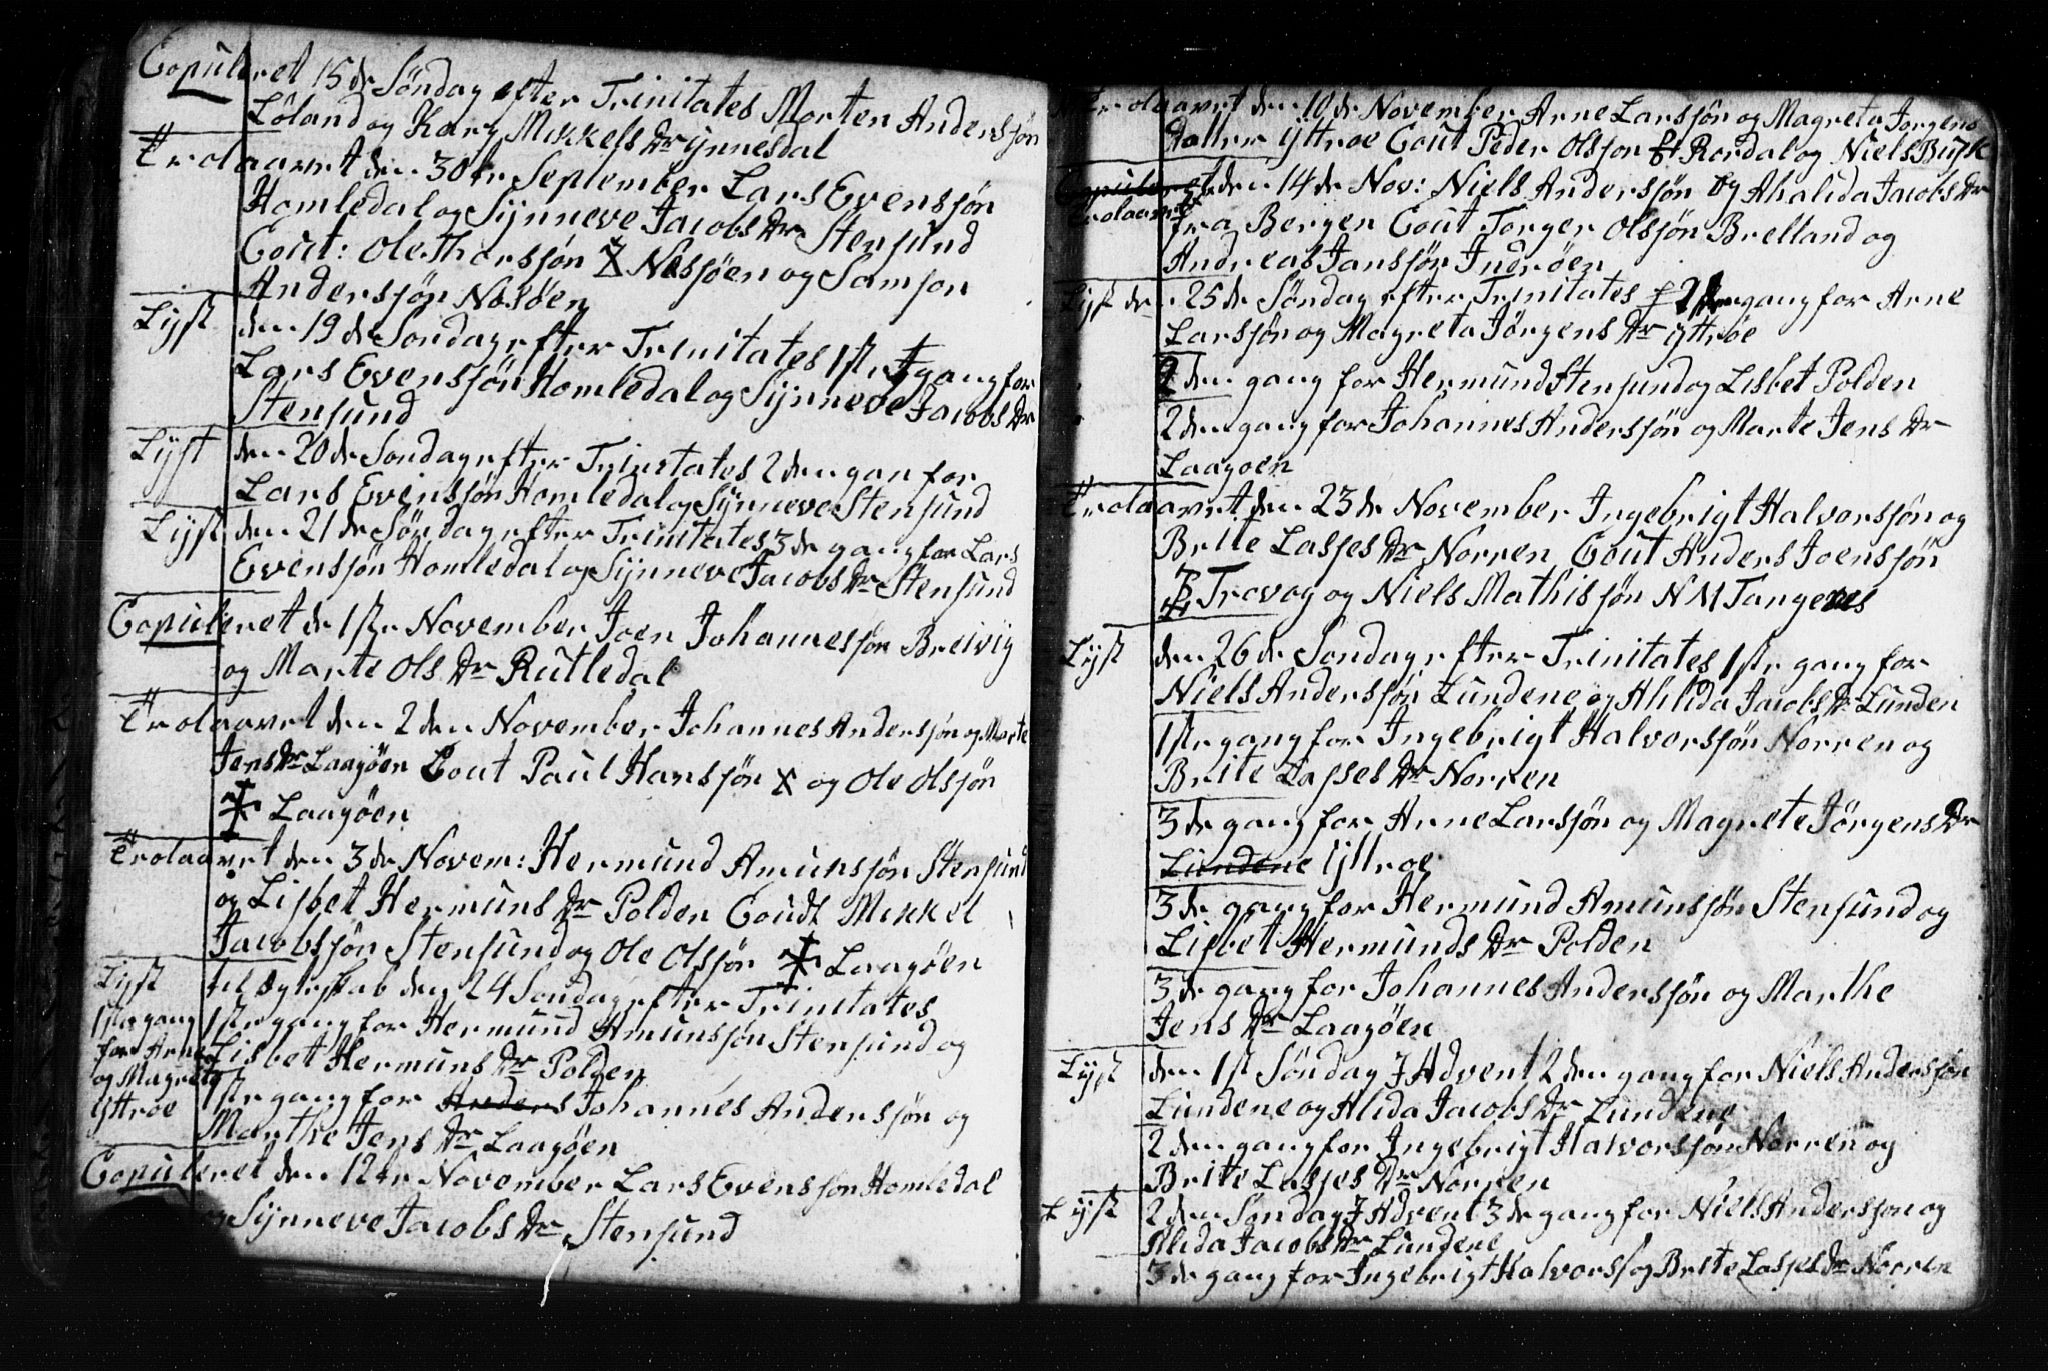 Copuleret 15de Söndag efter Trinitates Morten Andersjön
Löland og Kary Mikkels Dr ynnesdal
Trolaavet den 30te September Lars Evensjön
Homledal og Synneve Jacobs Dr Stensund
Cout: Ole Thorsjön Nessjöen og Samson
Andersjön Nosöen
Lyst den 19de Söndag efter Trinitates 1ste gang for
Lars Evensjön Homledal og Synneve Jacobs Dr
Stensund
Lyst den 20de Sondag efter Trinitates 2den gan for
Lars Evensjön Homledal og Synneve Stensund
Lyst den 21de Söndag efter Trinitates 3de gang for Lars
Evensjön Homledal og Synneve Jacobs Dr Stensund
Copuleret de 1ste November Joen Johannessjön Breivig
og Marte Ols Dr Rutledal
Trolaavet den 2den November Johannes Andersjön og Marte
Jens Dr Laagöen Cout Paul Hansjön X og Ole Olsjön
Laagöen
Trolaavet den 3de Novem: Hermund Amunsjön Stensund
og Lisbet Hermuns Dr Polden Coudt Mikkel
Jacobsjön Stensund og Ole Olsjön Laagöen
Lyst til Ægteskab den 24 Sondag efter Trinitates
1ste gang 1ste gang for Hermund Amunsjön Stensund og
for Arne Lisbet Hermuns Dr Polden
og Magrete 1ste gang for Anders Johannes Andersjön og
Yttroe Marthe Jens Dr Laagöen
Copuleret den 12te November Lars Evensjon Homledal
og Synneve Jacobs Dr Stensund
Trolaavet den 10de November Arne Larsjön og Magreta Jorgens
Datter Yttroe Cout Peder Olsjon Rordal og Niels Busk
Copuleret den 14de Nov: Niels Andersjön og Ahalida Jacobs Dr
Trolaavet fra Bergen Cout Torger Olsjön Brelland og
Andreas Jansjön Indröen
Lyst den 25de Söndag efter Trinitates 2den gang for Arne
Larsjön og Magreta Jörgens Dr Yttröe
2den gang for Hermund Stensund og Lisbet Polden
2den gang for Johannes Andersjön og Marte Jens Dr
Laagoen
Trolaavet den 23de November Ingebrigt Halvorsjön og
Brite Lasses Dr Norren Cout Anders Joensjön
Trovog og Niels Mathisjön N M Tangenes
Lyst den 26de Sondag efter Trinitates 1ste gang for
Niels Andersjön Lundene og Ahlida Jacobs Dr Lunden
1ste gang for Ingebrigt Halvorsjön Norren og
Brite Lasses Dr Norren
3de gang for Arne Larsjön og Magrete Jörgens Dr
Lundene Yttroe
3de gang for Hermund Amunsjön Stensund og
Lisbet Hermunds Dr Polden
3de gang for Johannes Andersjön og Marthe
Jens Dr Laagöen
Lyst den 1ste Söndag J Advent 2den gang for Niels Andersjön
Lundene og Alida Jacobs Dr Lundene
2den gang for Ingebrigt Halvorsjön Norren og
Brite Lasses Dr Norren
Lyst 2den Söndag J Advent 3de gang for Niels Andersjon og
Alida Jacobs Dr Lundene
3de gang for Ingebrigt Halvorsj og Brite Lasses Dr Norren